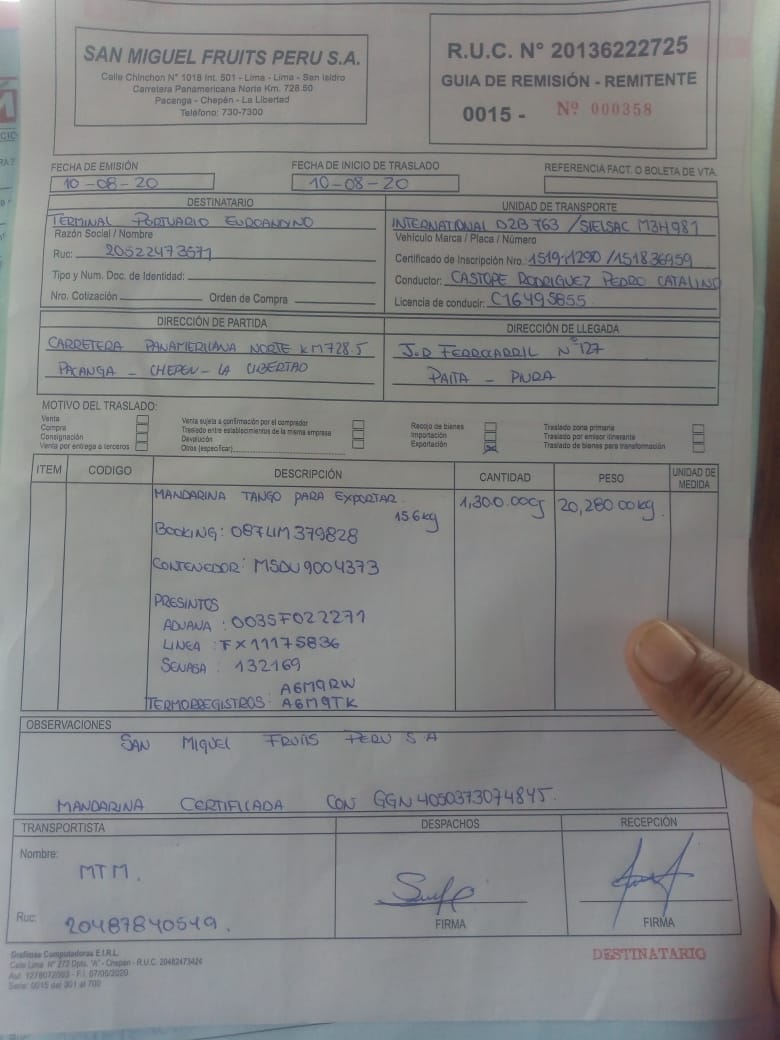 SAN MIGUEL FRUITS PERU S.A.
Calle Chinchon N° 1018 Int. 501 - Lima - Lima - San Isidro
Carretera Panamericana Norte Km. 728.50
Pacanga - Chepén - La Libertad
Teléfono: 730-7300
R.U.C. N° 20136222725
GUIA DE REMISIÓN - REMITENTE
0015 - Nº 000358
FECHA DE EMISIÓN
10-08-20
FECHA DE INICIO DE TRASLADO
10-08-20
REFERENCIA FACT. O BOLETA DE VTA.
DESTINATARIO
TERMINAL PORTUARIO EUROANDINO
Razón Social / Nombre
Ruc: 20522473571
Tipo y Num. Doc. de Identidad:
Nro. Cotización Orden de Compra
UNIDAD DE TRANSPORTE
INTERNATIONAL D2B 763 / SIELSAC M3H981
Vehículo Marca / Placa / Número
Certificado de Inscripción Nro. 151911290 / 151836959
Conductor: CASTOPE RODRIGUEZ PEDRO CATALINO
Licencia de conducir: C16495855
DIRECCIÓN DE PARTIDA
CARRETERA PANAMERICANA NORTE KM728.5
PACANGA - CHEPEN - LA LIBERTAD
DIRECCIÓN DE LLEGADA
J.R FERROCARRIL N° 127
PAITA - PIURA
MOTIVO DEL TRASLADO:
Venta
Compra
Consignación
Venta por entrega a terceros
Venta sujeta a confirmación por el comprador
Traslado entre establecimientos de la misma empresa
Devolución
Otros (especificar)
Recojo de bienes
Importación
Exportación
Traslado zona primaria
Traslado por emisor itinerante
Traslado de bienes para transformación
ITEM CODIGO DESCRIPCIÓN CANTIDAD PESO UNIDAD DE MEDIDA
MANDARINA TANGO PARA EXPORTAR. 1,300.00CJ 20,280.00kg.
15.6kg
BOOKING: 087LIM379828
CONTENEDOR: MSDU9004373
PRESINTOS
ADUANA: 0035F022271
LINEA: FX11175836
SENASA: 132169
A6M9RW
TERMORREGISTROS: A6M9TK
OBSERVACIONES
SAN MIGUEL FRUITS PERU S A
MANDARINA CERTIFICADA CON GGN 4050373074845.
TRANSPORTISTA
Nombre:
MTM.
Ruc: 20487840549.
DESPACHOS
FIRMA
RECEPCIÓN
FIRMA
Grafimax Computadoras E.I.R.L.
Calle Lima N° 272 Dpto. "A" - Chepen - R.U.C. 20482473424
Serie: 0015 del 301 al 700
DESTINATARIO